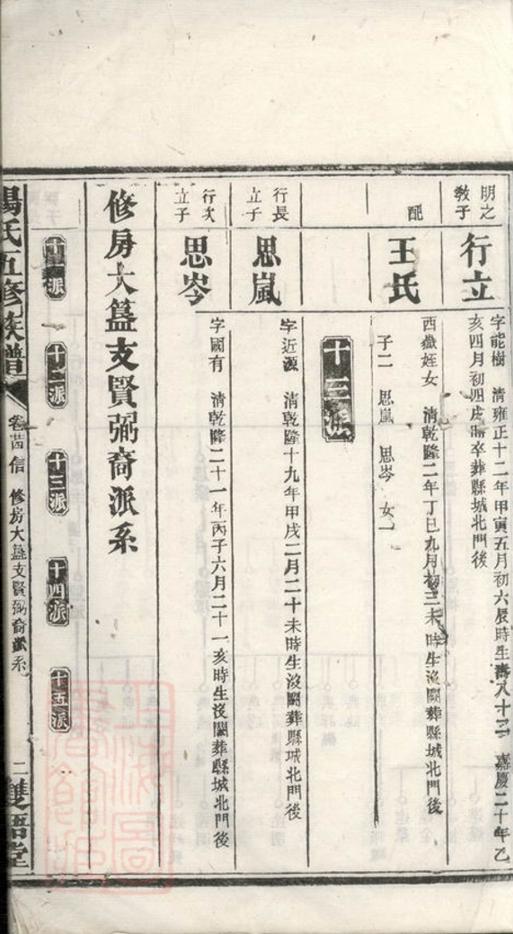 明之
教子
行立
字能樹 清雍正十二年甲寅五月初六辰時生壽八十二 嘉慶二十年乙
亥四月初四戌時卒葬縣城北門後
配
王氏
西嶽姪女 清乾隆二年丁巳九月初三未時生沒闕葬縣城北門後
子二 思嵐 思岑 女一
十三派
行長
立子
思嵐
字近源 清乾隆十九年甲戌二月二十未時生沒闕葬縣城北門後
行次
立子
思岑
字國有 清乾隆二十一年丙子六月二十一亥時生沒闕葬縣城北門後
修房大簋支賢弼裔派系
十一派 十二派 十三派 十四派 十五派
楊氏五修族譜 卷 信 修房大簋支賢弼裔派系 二 雙梧堂
上海圖書館藏